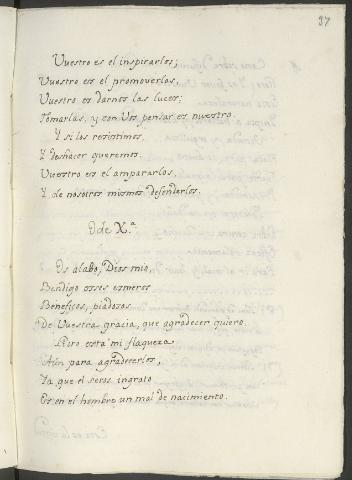 37
Vuestro es el inspirarlos;
Vuestro es el promoverlos,
Vuestro es darnos las luces;
Tomarlas, y con Vos pensar es nuestro.
Y si los resistimos,
Y deshacer queremos,
Vuestro es el ampararlos,
Y de nosotros mismos defenderlos.
Ode X.ª
Os alabo, Dios mio,
Bendigo esses esmeros
Beneficos, piadosos
De Vuestra gracia, que agradecer quiero.
Pero esta mi flaqueza
Aun para agradecerlos,
Ya que el seros ingrato
Es en el hombre un mal de nacimiento.